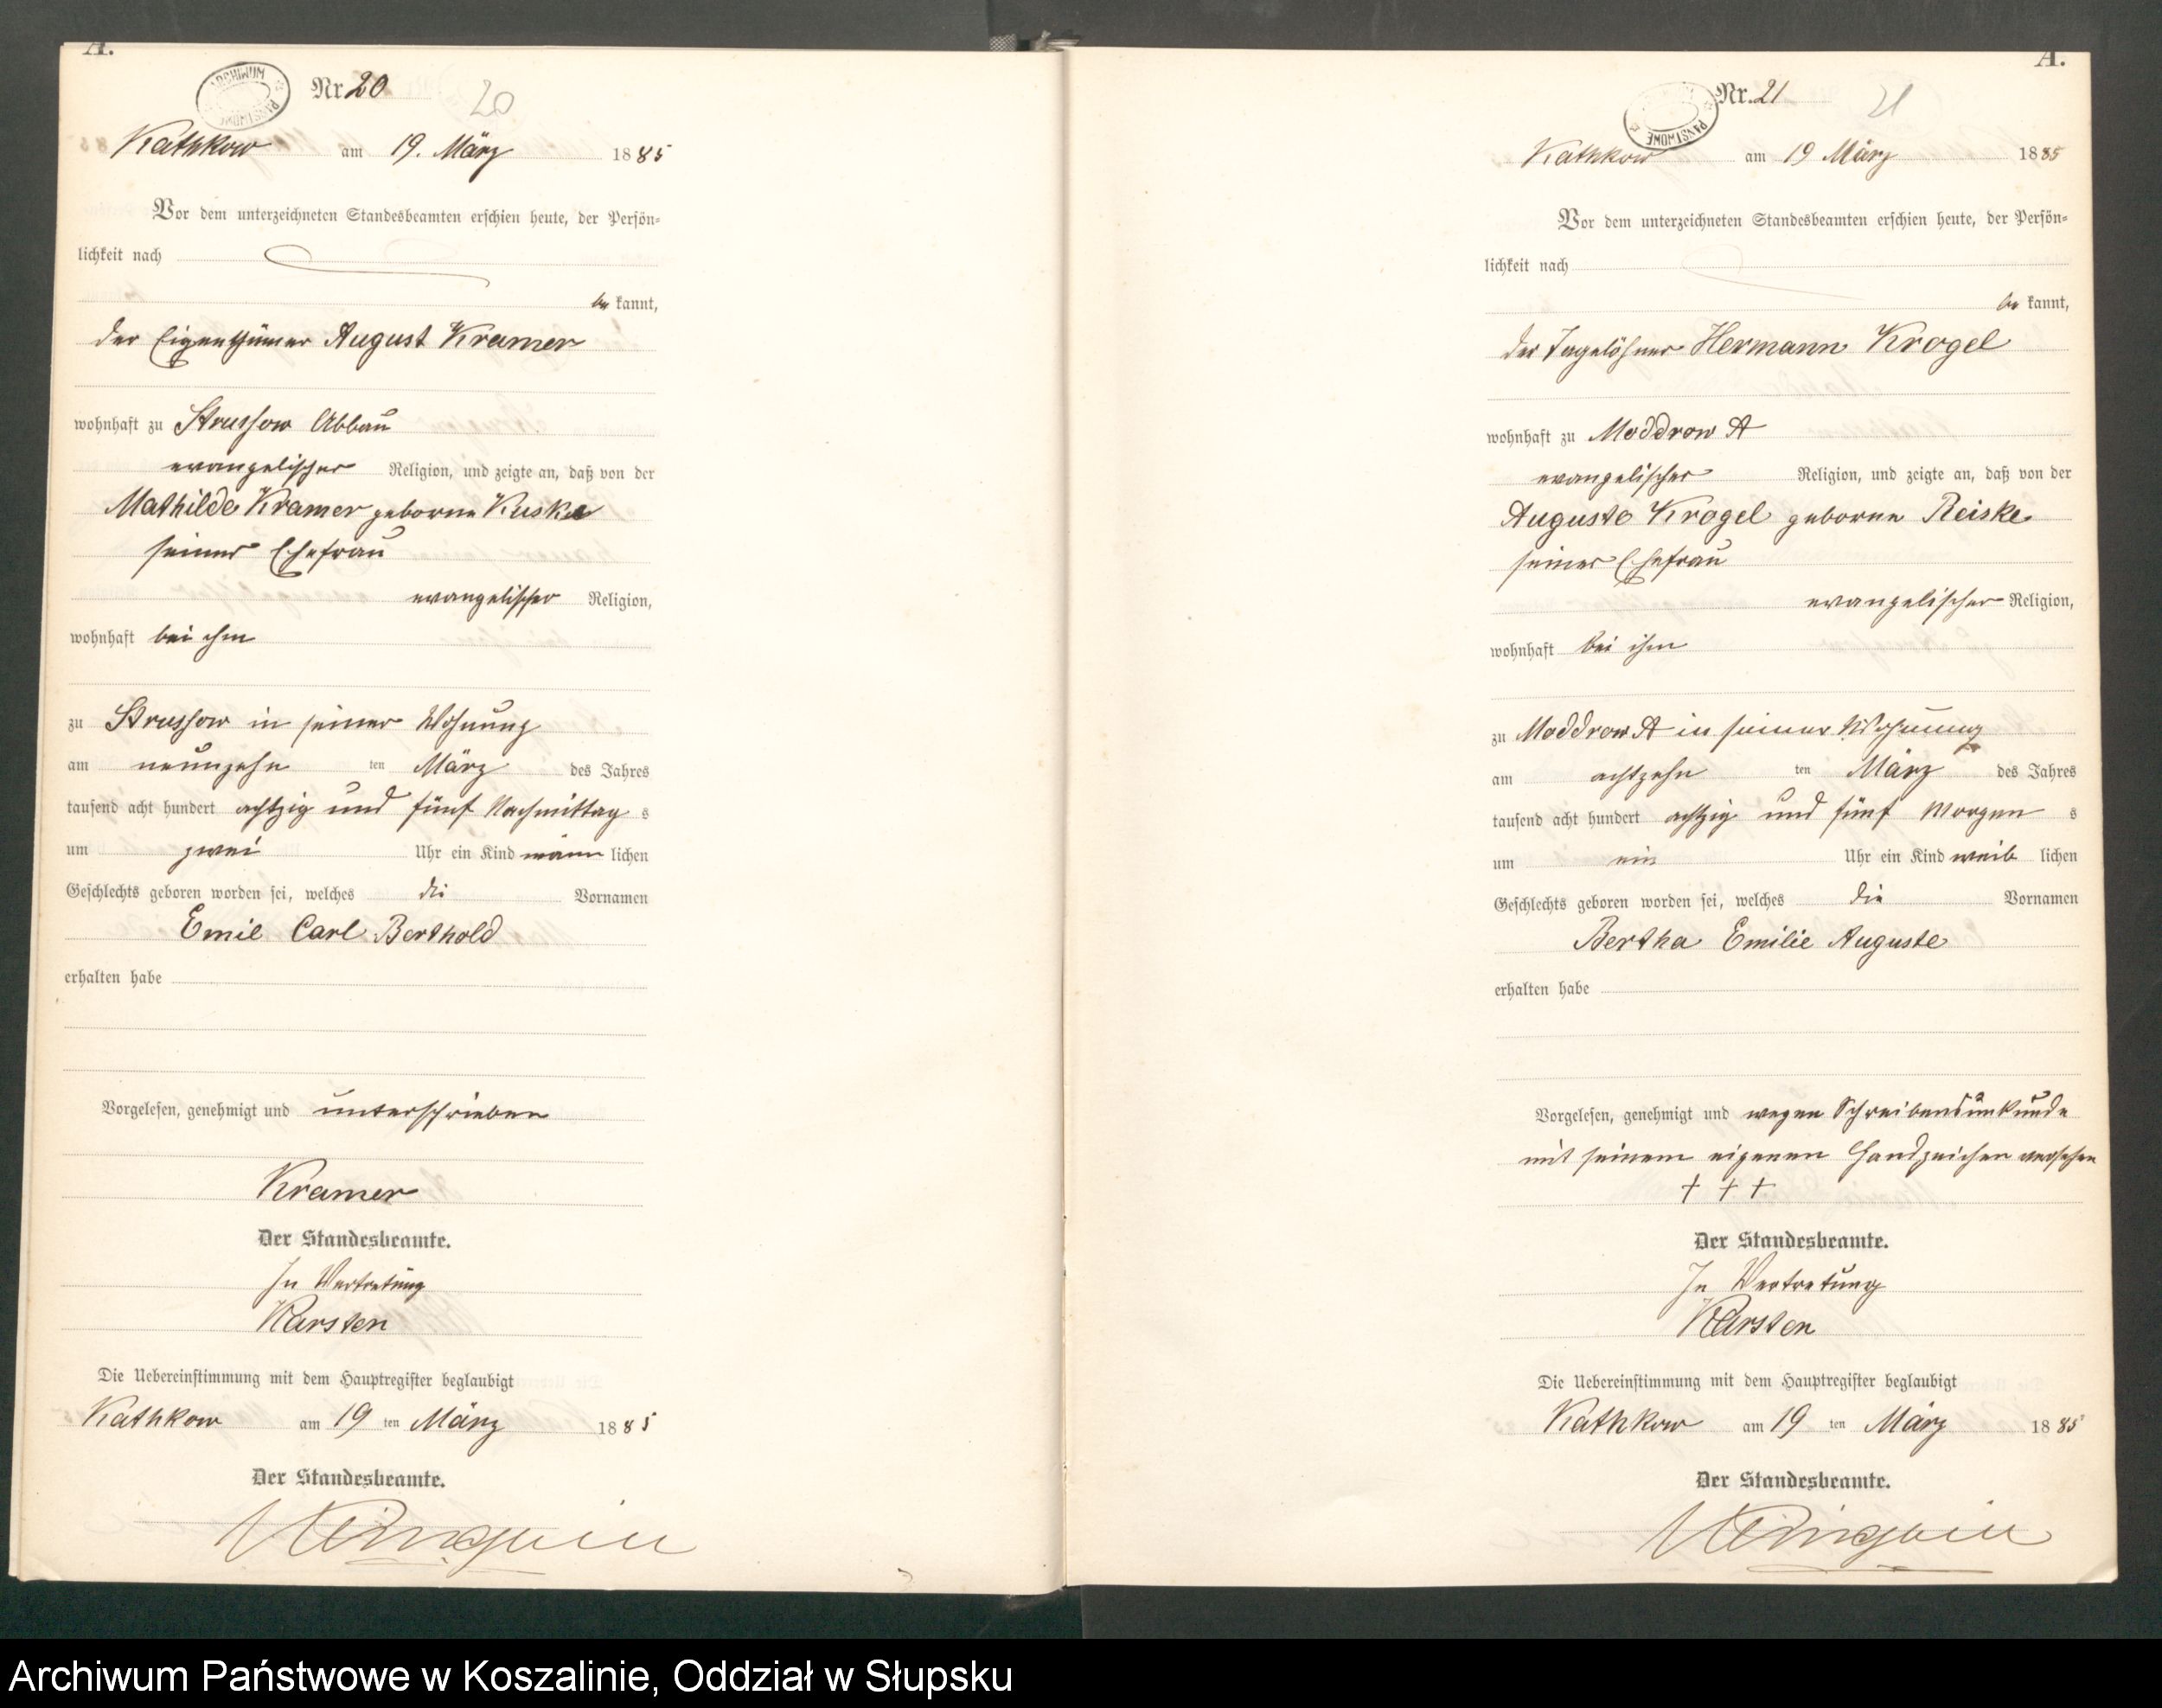 A.
ARCHIWUM PAŃSTWOWE
Nr. 20
20
Kathkow am 19. März 1885
Vor dem unterzeichneten Standesbeamten erschien heute, der Persön-
lichkeit nach
be kannt,
der Eigenthümer August Kramer
wohnhaft zu Strussow Abbau
evangelischer Religion, und zeigte an, daß von der
Mathilde Kramer geborne Kuske
seiner Ehefrau
evangelischer Religion,
wohnhaft bei ihm
zu Strussow in seiner Wohnung
am neunzehn ten März des Jahres
tausend acht hundert achtzig und fünf Nachmittag s
um zwei Uhr ein Kind männ lichen
Geschlechts geboren worden sei, welches die Vornamen
Emil Carl Berthold
erhalten habe
Vorgelesen, genehmigt und unterschrieben
Kramer
Der Standesbeamte.
In Vertretung
Karsten
Die Uebereinstimmung mit dem Hauptregister beglaubigt
Kathkow am 19 ten März 1885
Der Standesbeamte.
A.
PAŃSTWOWE
Nr. 21
21
Kathkow am 19 März 1885
Vor dem unterzeichneten Standesbeamten erschien heute, der Persön-
lichkeit nach
be kannt,
der Tagelöhner Hermann Krogel
wohnhaft zu Moddrow A
evangelischer Religion, und zeigte an, daß von der
Auguste Krogel geborne Reiske
seiner Ehefrau
evangelischer Religion,
wohnhaft bei ihm
zu Moddrow A in seiner Wohnung
am achtzehn ten März des Jahres
tausend acht hundert achtzig und fünf Morgen s
um ein Uhr ein Kind weib lichen
Geschlechts geboren worden sei, welches die Vornamen
Bertha Emilie Auguste
erhalten habe
Vorgelesen, genehmigt und wegen Schreibensunkunde
mit seinem eigenen Handzeichen versehen
+ + +
Der Standesbeamte.
In Vertretung
Karsten
Die Uebereinstimmung mit dem Hauptregister beglaubigt
Kathkow am 19 ten März 1885
Der Standesbeamte.
Archiwum Państwowe w Koszalinie, Oddział w Słupsku